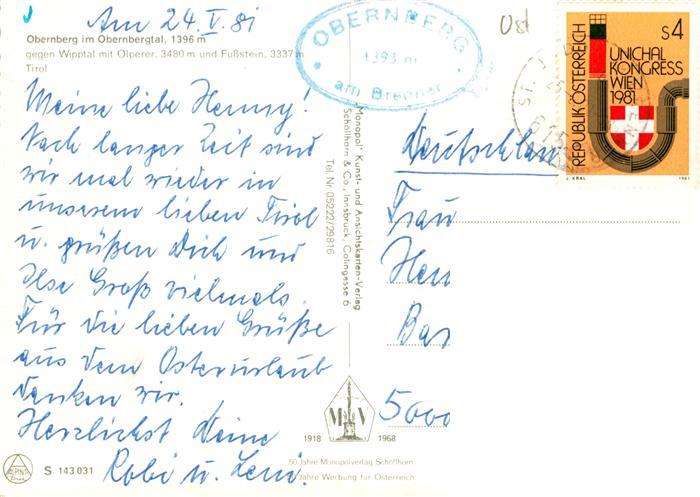 Am 24. V. 81
Obernberg im Obernbergtal, 1396 m
gegen Wipptal mit Olperer, 3480 m und Fußstein, 3337 m
Tirol
Meine liebe Henny!
Nach langer Zeit sind
wir mal wieder in
unserem lieben Tirol
u. grüßen Dich und
Ilse Groß vielmals.
Für die lieben Grüße
aus dem Osterurlaub
danken wir.
Herzlichst Deine
Robi u. Leni.
S 143 031
OBERNBERG
1393 m
am Brenner
"Monopol" Kunst- und Ansichtskarten-Verlag
Schöllhorn & Co., Innsbruck, Colingasse 6
Tel. Nr. 05222/29816
M V
1918 1968
50 Jahre Monopolverlag Schöllhorn
Jahre Werbung für Österreich
S4
UNICHAL
KONGRESS
WIEN
1981
REPUBLIK ÖSTERREICH
J. KRAL 1981
Deutschlan
Frau
Hen
Bar
5000